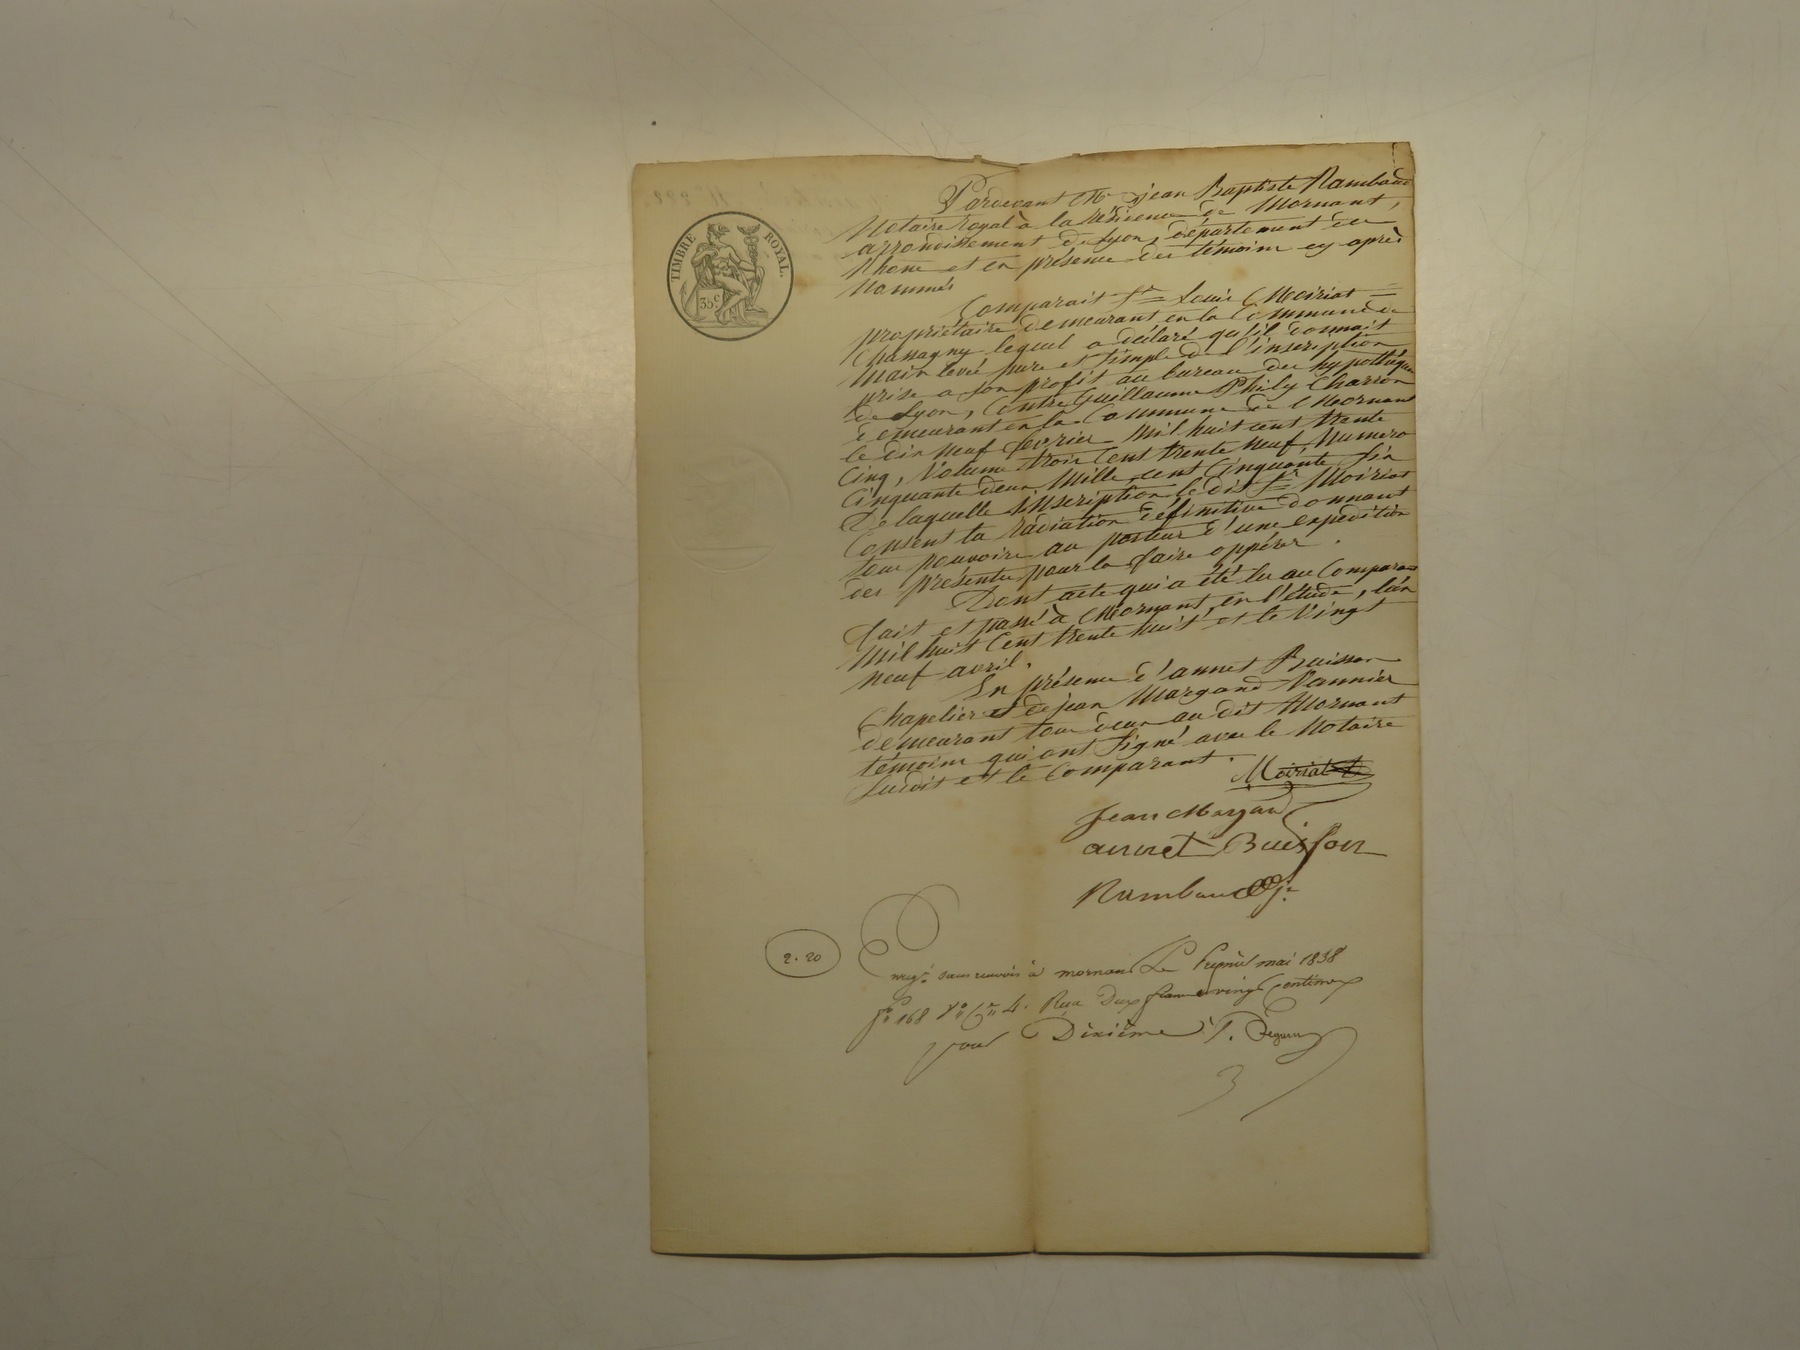 TIMBRE ROYAL.
35 c.
Pardevant Me jean Baptiste Rambaud
Notaire royal à la résidence de Mornant,
arrondissement de Lyon, département du
Rhône et en présence des témoins cy après
Nommés
Comparait Sr Louis Moiriat
propriétaire demeurant en la Commune de
Chassagny lequel a déclaré qu'il donnait
Main levée pure et simple de l'inscription
prise a son profit au bureau des hypothèques
de Lyon, Contre Guillaume Phily Charron
demeurant en la Commune de Mornant
le dix neuf fevrier Mil huit cent trente
Cinq, Volume trois Cent trente neuf, Numéro
Cinquante deux Mille cent Cinquante six
De laquelle inscription le dit Sr Moiriat
Consent la radiation définitive donnant
tous pouvoirs au porteur d'une expédition
des présentes pour la faire oppérer.
Dont acte qui a été lu au Comparant
fait et passé à Mornant, en l'étude, l'an
Mil huit Cent trente huit et le Vingt
neuf avril.
En présence d'annet Buisson
Chapelier et de jean Margand Vannier
demeurant tous deux au dit Mornant
témoins qui ont signé avec le Notaire
susdit et le Comparant.
Moiriat
Jean Margand
annet Buisson
Rambaud
2. 20
Enregé sans renvois à mornant Le premier mai 1838
fo 168 Vo Ce 4. Reçu Deux francs vingt Centimes
pour Dixième